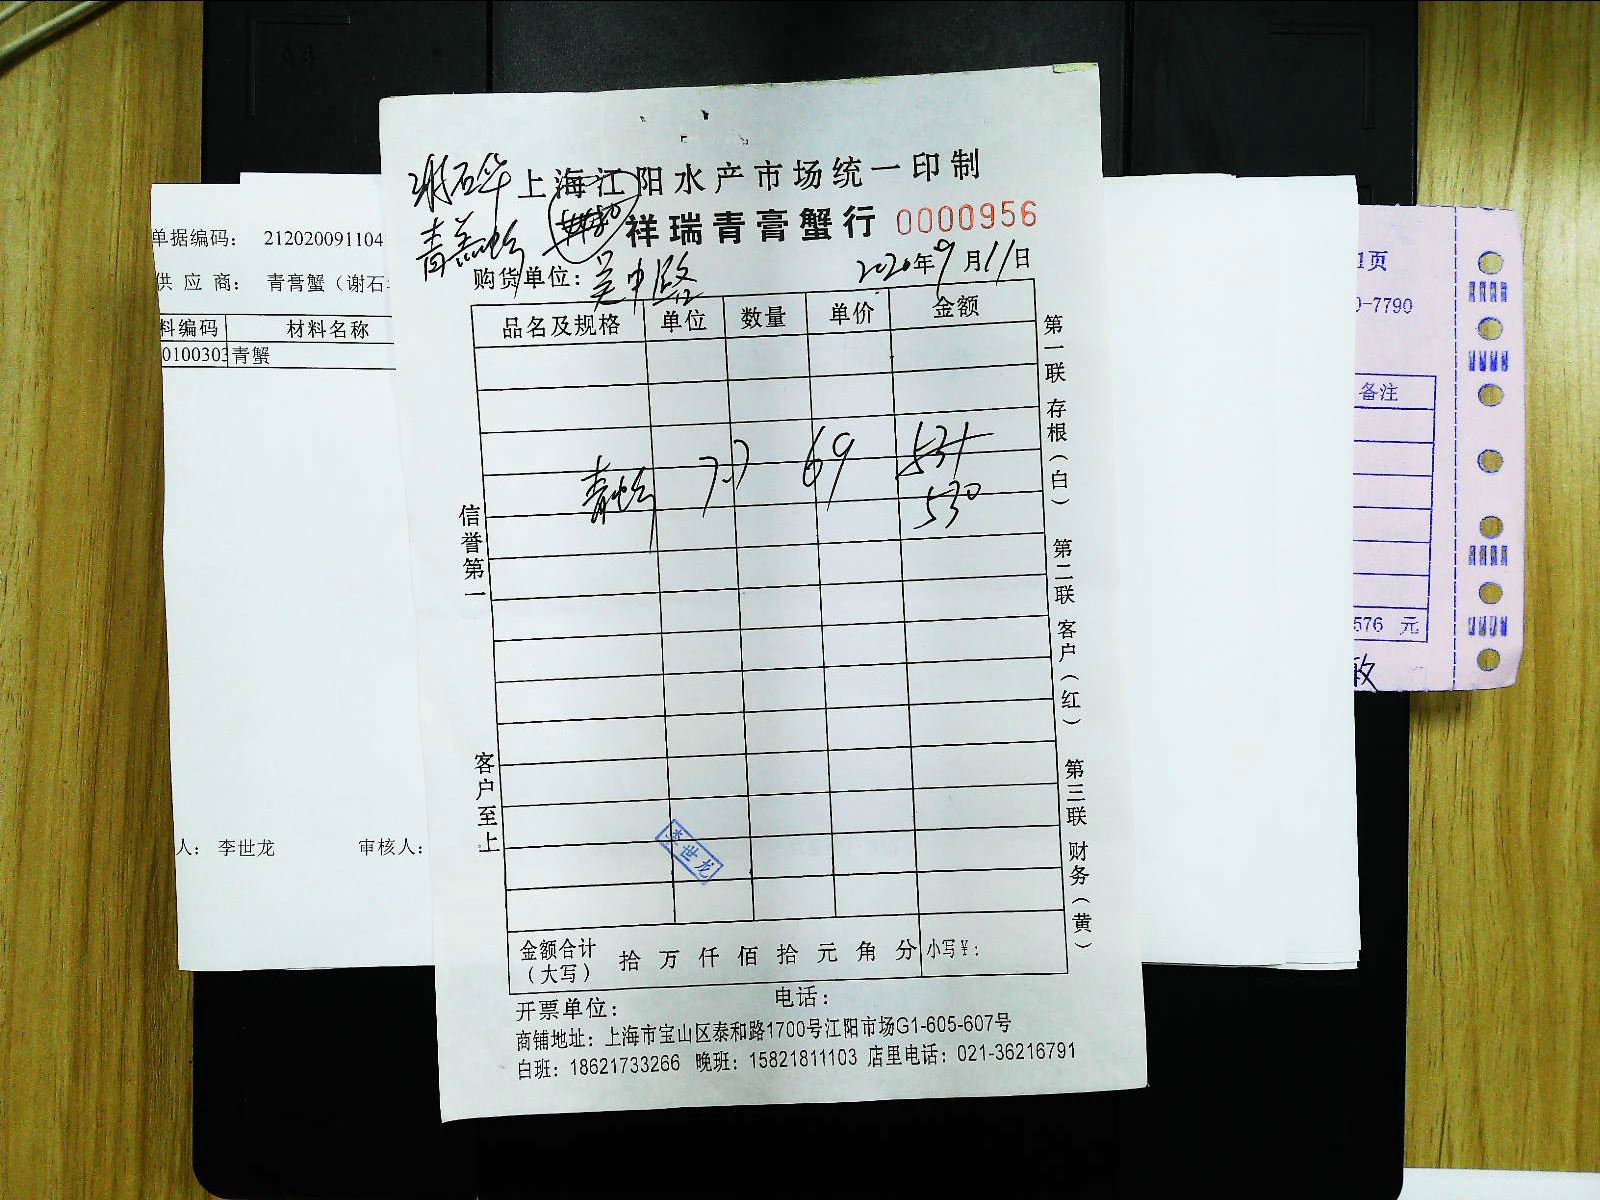 谢石华
上海江阳水产市场统一印制
青羔蟹
祥瑞青膏蟹行 0000956
购货单位：吴中路 2020年9月11日
品名及规格 单位 数量 单价 金额
青蟹 7.7 69 531
530
信誉第一
客户至上
第一联 存根（白） 第二联 客户（红） 第三联 财务（黄）
李世龙
金额合计（大写） 拾 万 仟 佰 拾 元 角 分 小写¥：
开票单位： 电话：
商铺地址：上海市宝山区泰和路1700号江阳市场G1-605-607号
白班：18621733266 晚班：15821811103 店里电话：021-36216791
单据编码： 212020091104
供 应 商： 青膏蟹（谢石
料编码 材料名称
0100303 青蟹
人： 李世龙 审核人：
1页
0-7790
备注
576 元